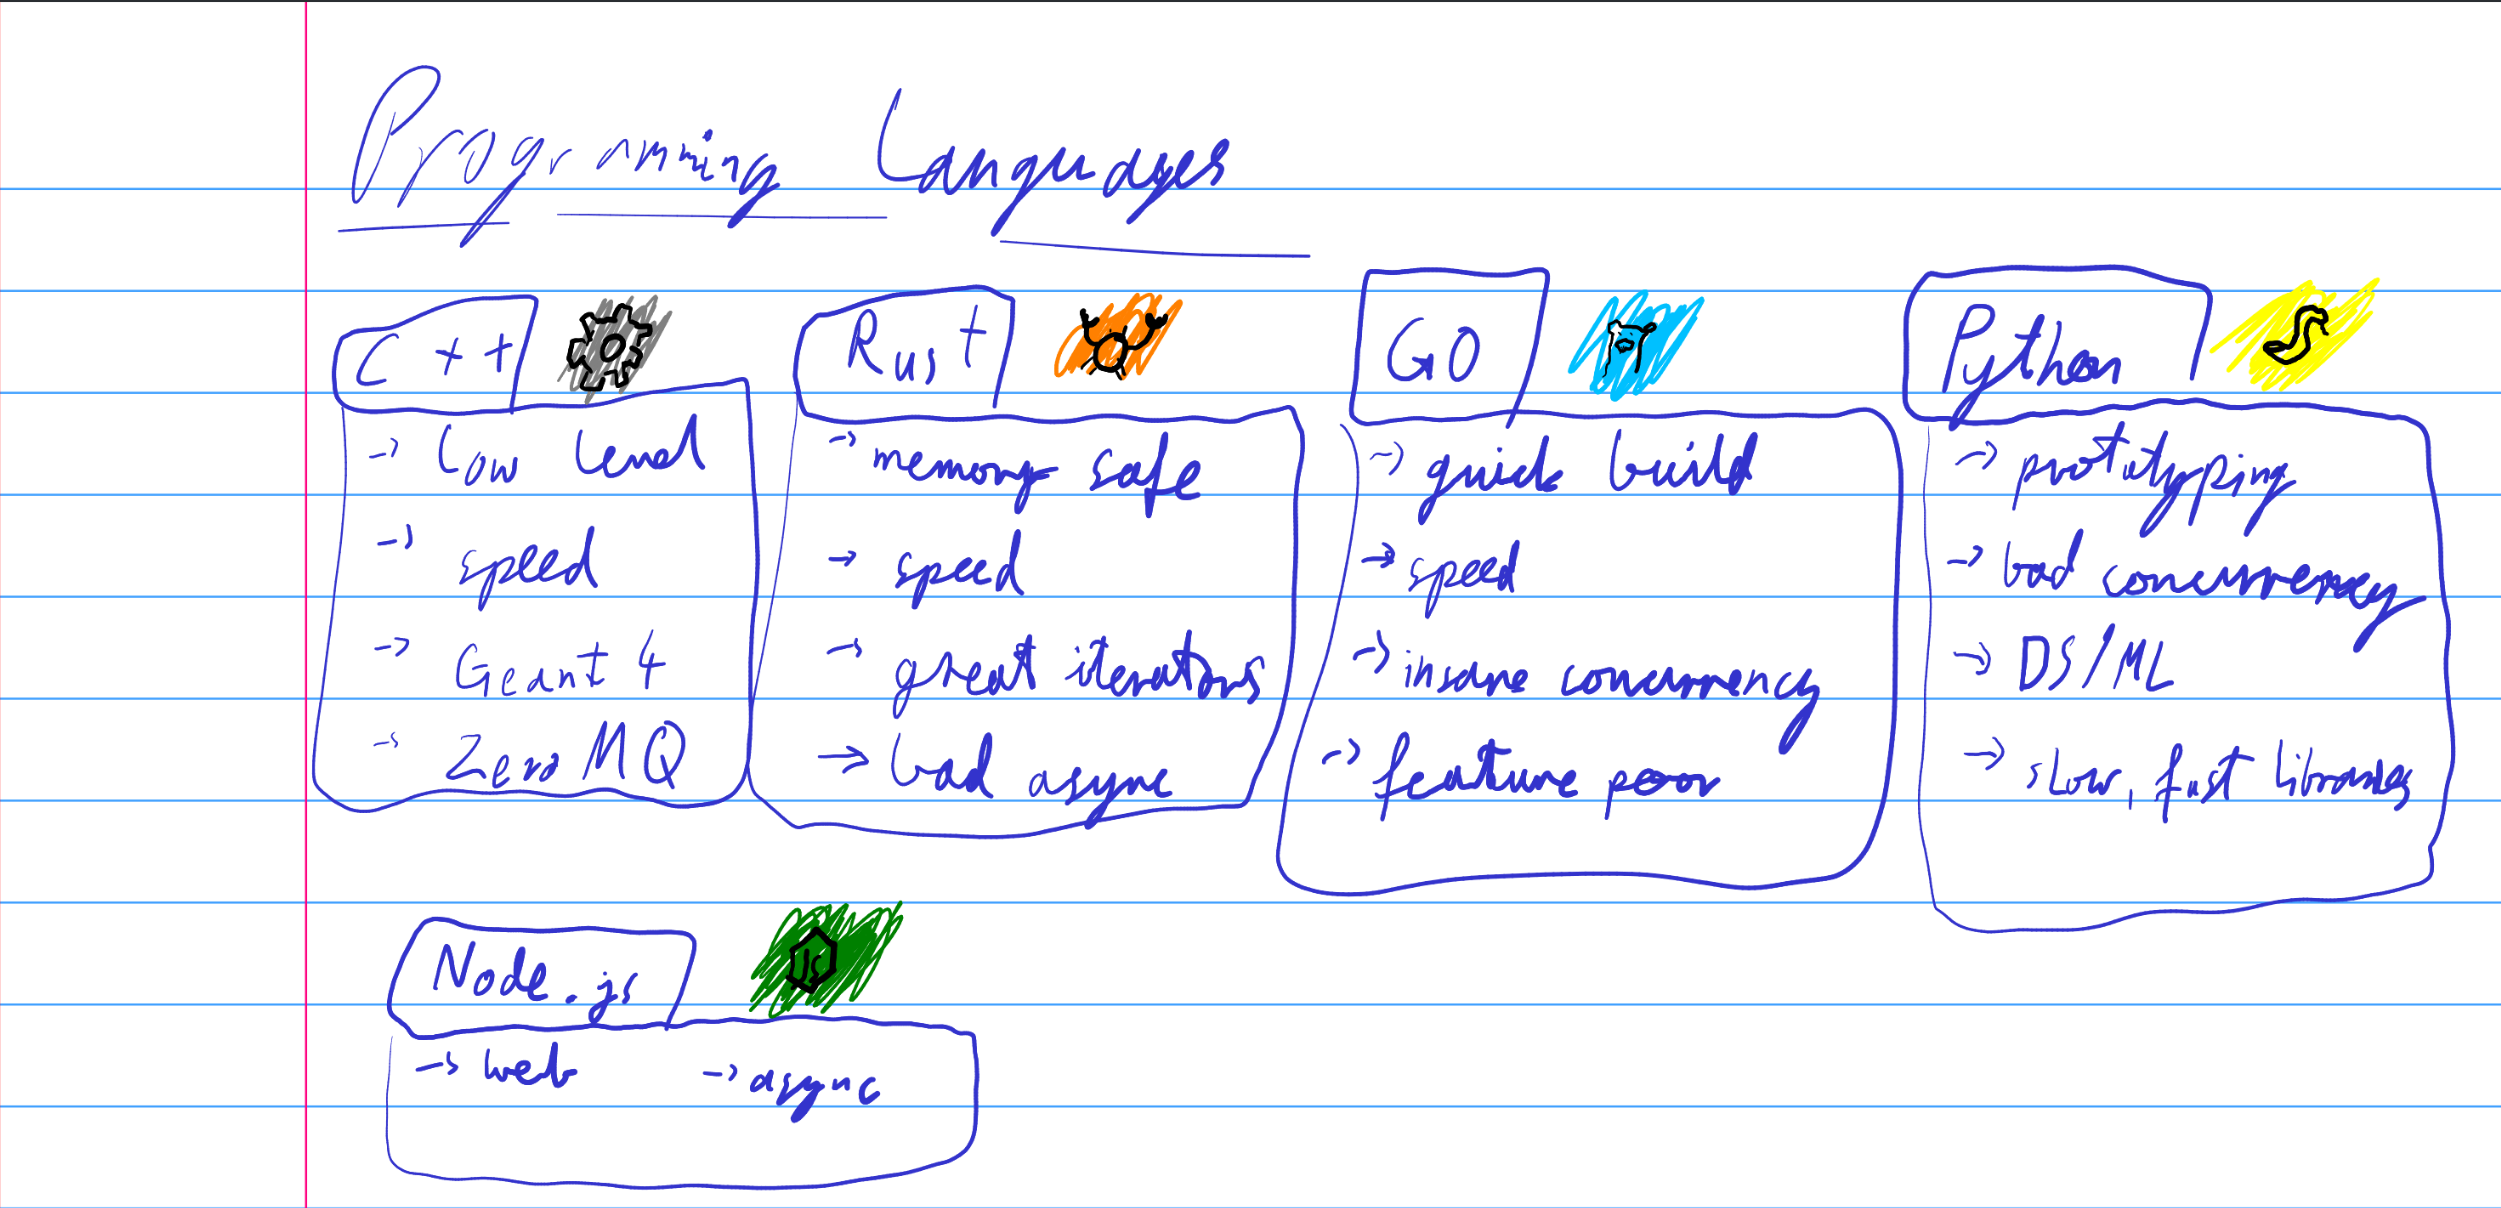 Programming Languages
C++
→ Low level
→ speed
→ Geant4
→ ZeroMQ
Rust
→ memory safe
→ speed
→ great iterators
→ bad async
GO
→ quick build
→ speed
→ insane concurrency
→ feature poor
Python
→ prototyping
→ bad concurrency
→ DS/ML
→ slow, fast libraries
Node.js
→ web → async